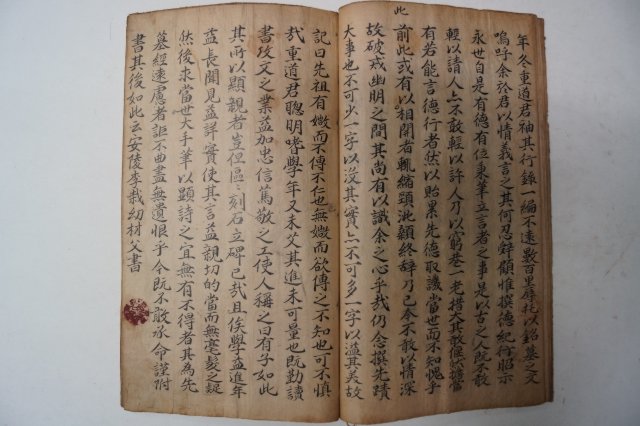 此
年冬重道君袖其行錄一編不遠數百里辱托以銘墓之文
嗚呼余於君以情義言之其何忍辭顧惟撰德紀行昭示
永世自是有德有位秉筆立言者之事是以古之人既不敢
輕以請人亦不敢輕以許人乃以窮巷一老措大其敢偃然擔當
有若能言德行者然以貽累先德取譏當世而不知愧乎
前此或有以相聞者輒縮頭汦顙終辭乃已今不敢以情深
故破戒幽明之間其尚有以識余之心乎哉仍念撰先蹟
大事也不可少一字以沒其實亦不可多一字以溢其美故
記曰先祖有媺而不傳不仁也無媺而欲傳之不知也可不慎
哉重道君聰明嗜學年又未艾其進未可量也既勤讀
書攻文之業益加忠信篤敬之工使人稱之曰有子如此
其所以顯親者豈但區〻刻石立碑已哉且俟學益進年
益長聞見益詳實使其言益親切的當而無毫髮之疑
然後求當世大手筆以顯詩之宜無有不得者其為先
墓經遠慮者詎不曲盡無遺恨乎今既不敢承命謹附
書其後如此云安陵李栽幼材父書